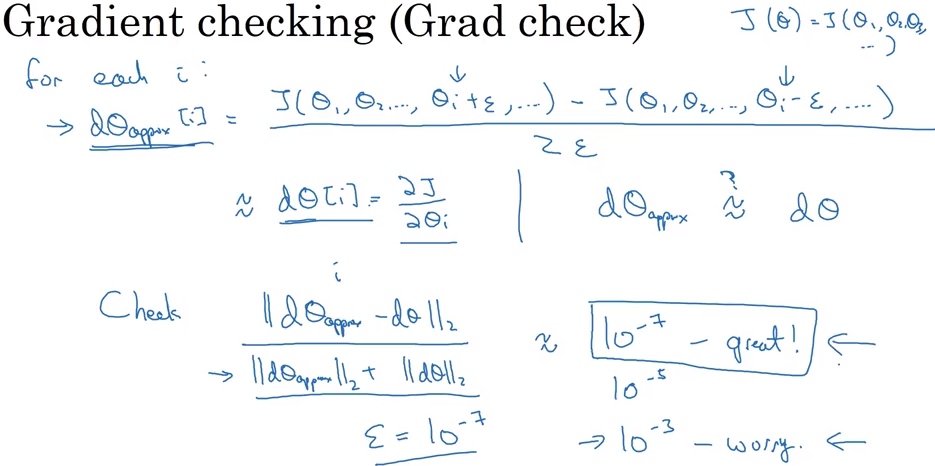 Gradient checking (Grad check)
J(θ) = J(θ₁, θ₂, θ₃, ...)
for each i:
→ dθapprox[i] = J(θ₁, θ₂, ..., θi+ε, ...) - J(θ₁, θ₂, ..., θi-ε, ....)
2ε
≈ dθ[i] = ∂J/∂θi | dθapprox ≈? dθ
i
Check ||dθapprox - dθ||₂
→ ||dθapprox||₂ + ||dθ||₂
≈ 10⁻⁷ - great! ←
10⁻⁵
ε = 10⁻⁷
→ 10⁻³ - worry. ←